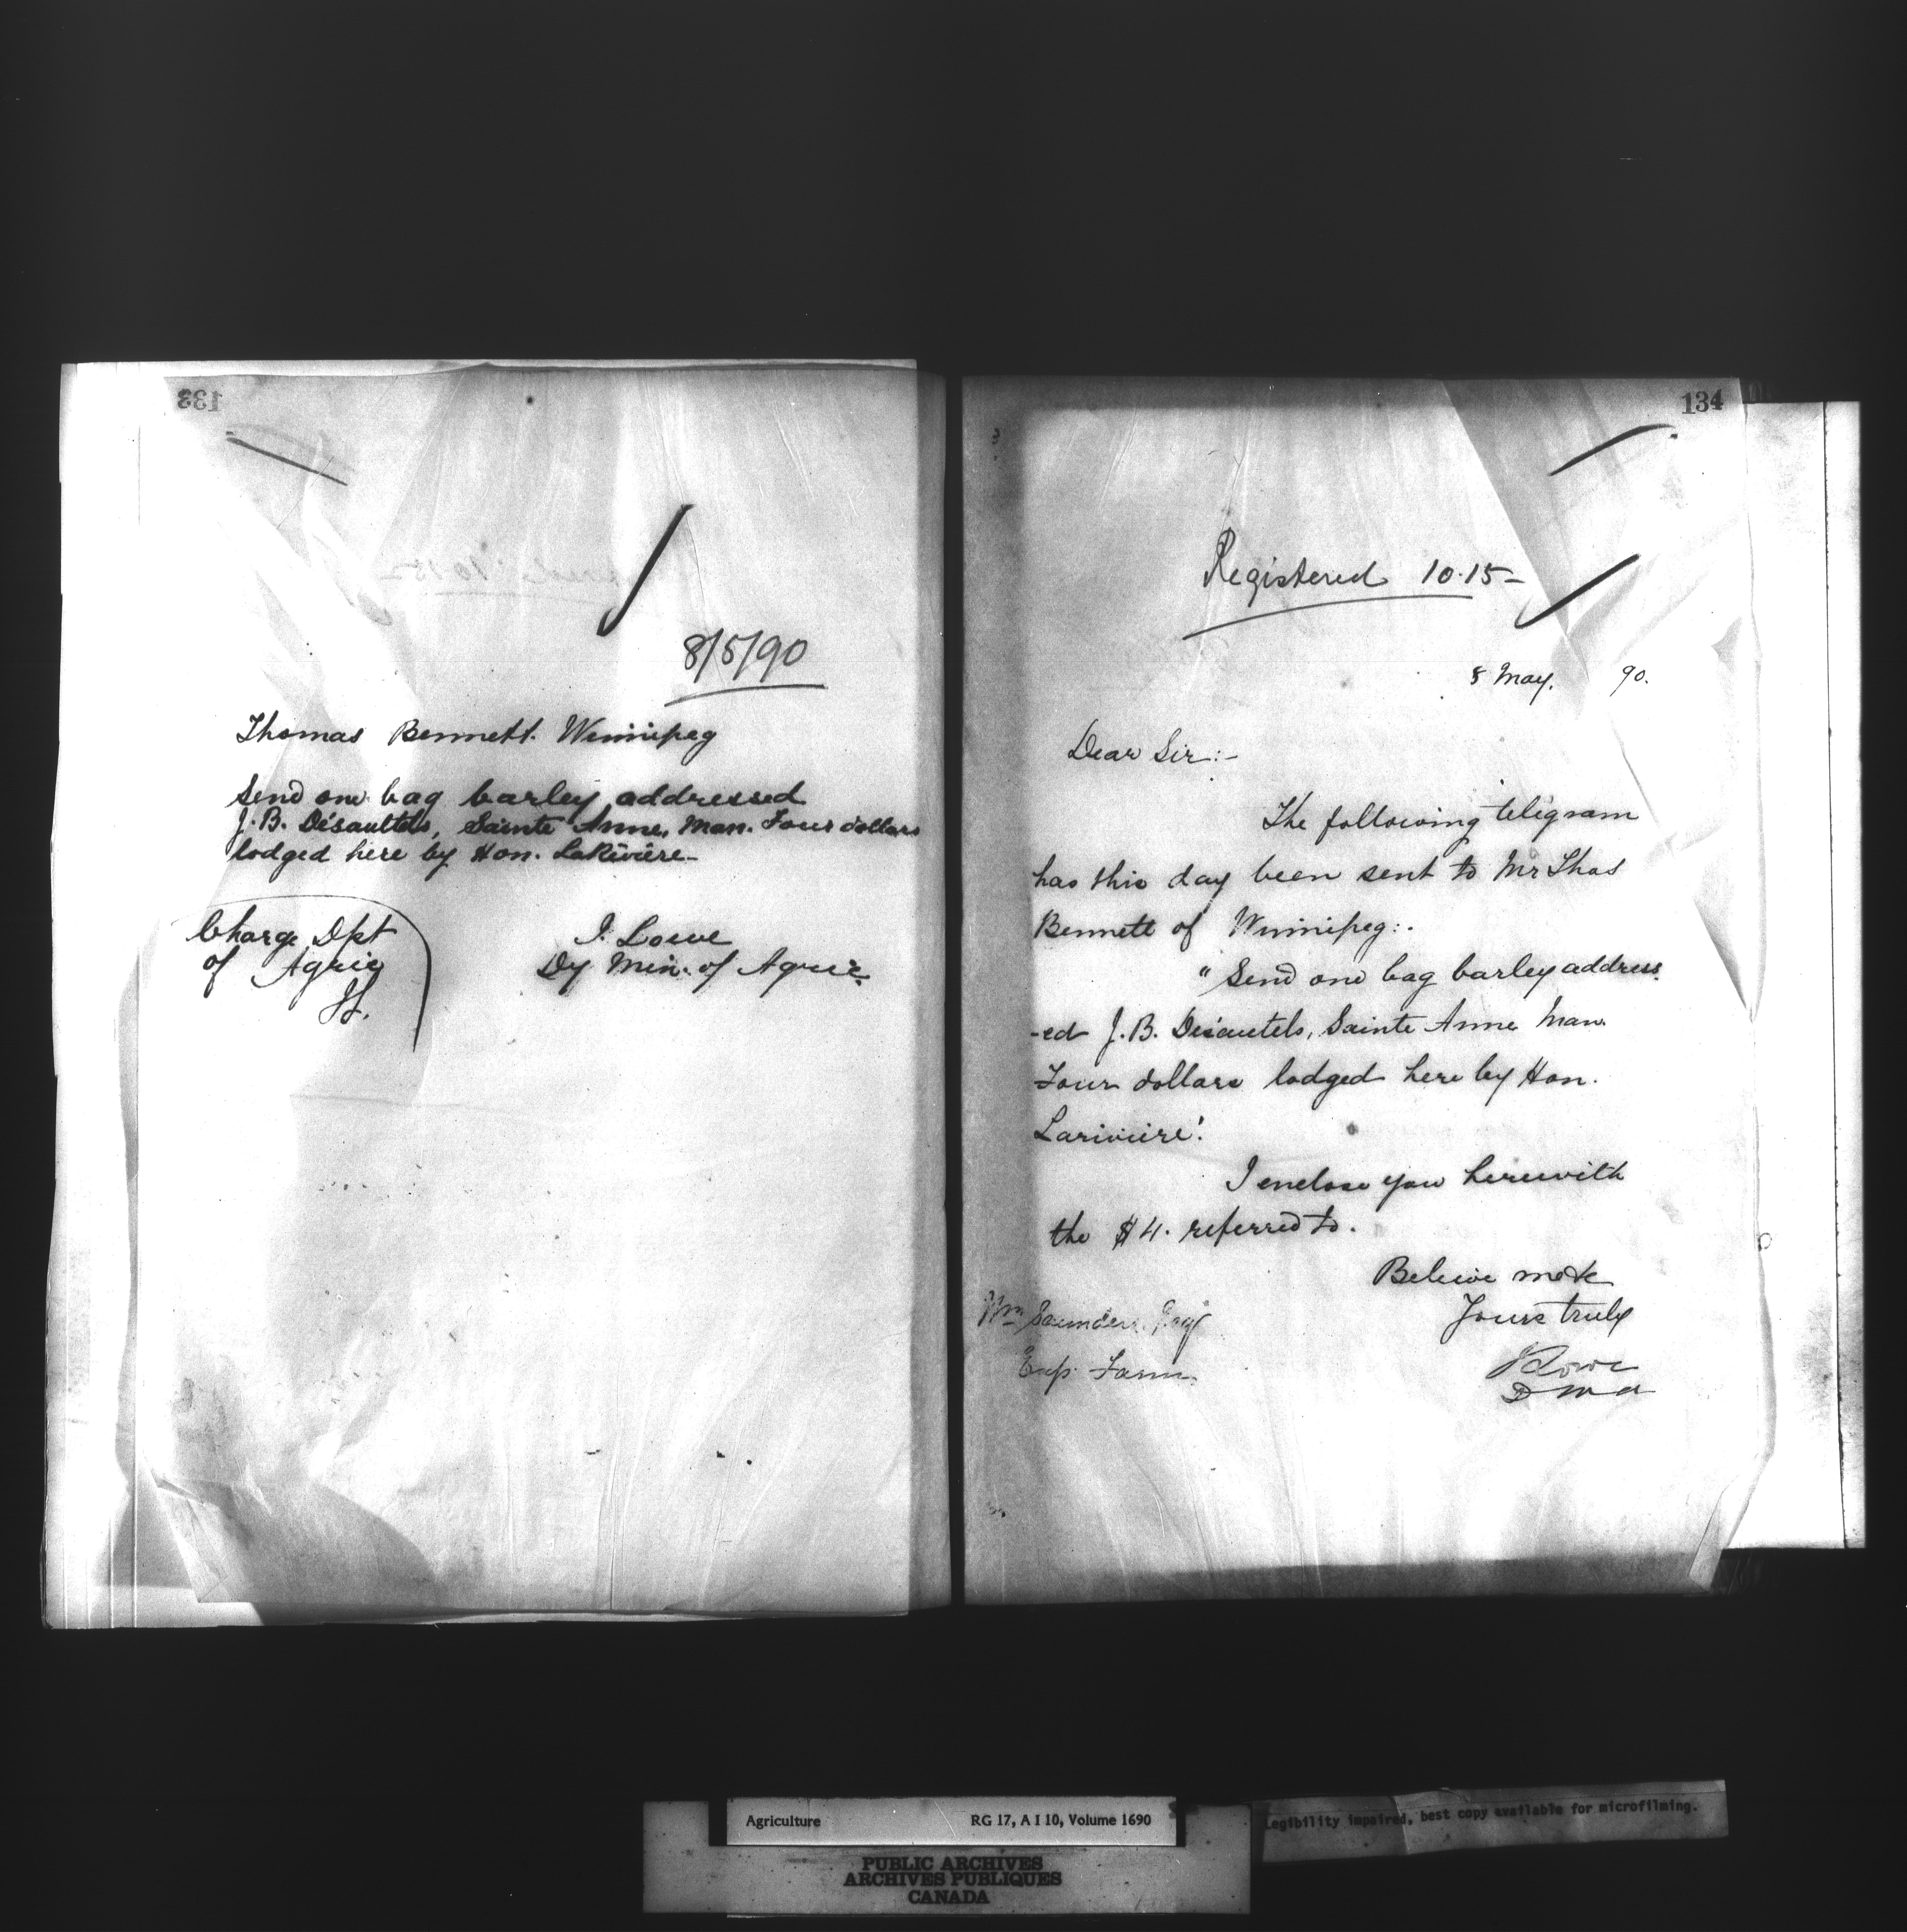 133
8/5/90
Thomas Bennett. Winnipeg
Send one bag barley addressed
J.B. Désautels, Sainte Anne, Man. Four dollars
lodged here by Hon. LaRivière-
Charge Dpt
of Agric
JL.
J. Lowe
Dy Min. of Agric.
134
Registered 10.15-
8 May, 90.
Dear Sir:-
The following telegram
has this day been sent to Mr Thos
Bennett of Winnipeg:-
"Send one bag barley address
-ed J.B. Désautels, Sainte Anne Man.
Four dollars lodged here by Hon.
Larivière."
I enclose you herewith
the $4. referred to.
Believe me to
Yours truly
J Lowe
D M A
Wm Saunders Esq
Exp. Farm.
Agriculture RG 17, A I 10, Volume 1690
Legibility impaired, best copy available for microfilming.
PUBLIC ARCHIVES
ARCHIVES PUBLIQUES
CANADA